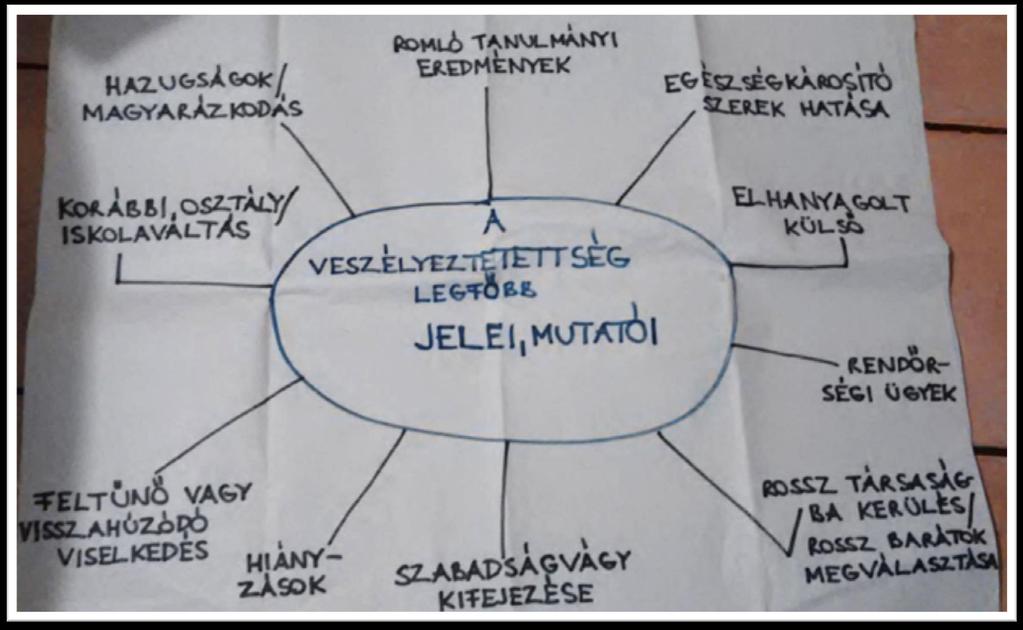 ROMLÓ TANULMÁNYI
EREDMÉNYEK
HAZUGSÁGOK/
MAGYARÁZKODÁS
EGÉSZSÉGKÁROSÍTÓ
SZEREK HATÁSA
KORÁBBI, OSZTÁLY/
ISKOLAVÁLTÁS
ELHANYAGOLT
KÜLSŐ
A
VESZÉLYEZTETETTSÉG
LEGFŐBB
JELEI, MUTATÓI
RENDŐR-
SÉGI ÜGYEK
FELTŰNŐ VAGY
VISSZAHÚZÓDÓ
VISELKEDÉS
HIÁNY-
ZÁSOK
SZABADSÁGVÁGY
KIFEJEZÉSE
ROSSZ TÁRSASÁG-
BA KERÜLÉS/
ROSSZ BARÁTOK
MEGVÁLASZTÁSA